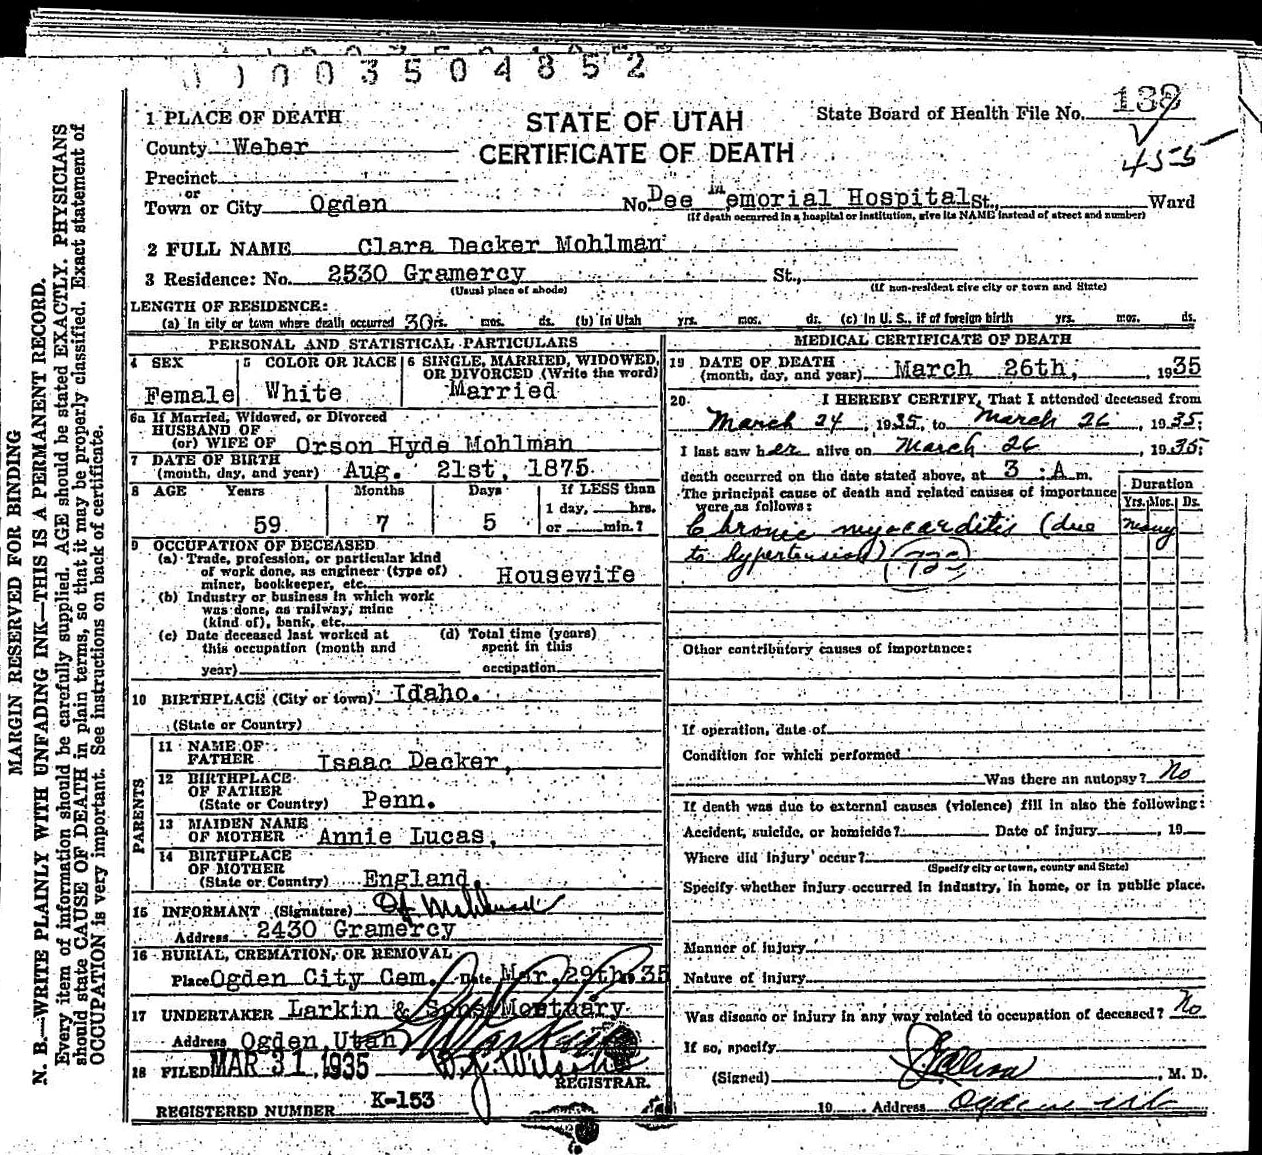 0 0 3 5 0 4 8 5 2
1 PLACE OF DEATH
STATE OF UTAH
CERTIFICATE OF DEATH
State Board of Health File No. 138
455
County Weber
Precinct
or
Town or City Ogden No. Dee Memorial Hospital St., Ward
(If death occurred in a hospital or institution, give its NAME instead of street and number)
2 FULL NAME Clara Decker Mohlman
3 Residence: No. 2530 Gramercy St.,
(Usual place of abode) (If non-resident give city or town and State)
LENGTH OF RESIDENCE:
(a) In city or town where death occurred 30 rs. mos. ds. (b) In Utah yrs. mos. ds. (c) In U. S., if of foreign birth yrs. mos. ds.
PERSONAL AND STATISTICAL PARTICULARS
4 SEX
Female
5 COLOR OR RACE
White
6 SINGLE, MARRIED, WIDOWED,
OR DIVORCED (Write the word)
Married
6a If Married, Widowed, or Divorced
HUSBAND OF
(or) WIFE OF Orson Hyde Mohlman
7 DATE OF BIRTH
(month, day, and year) Aug. 21st, 1875
8 AGE Years Months Days If LESS than
1 day, hrs.
59 7 5 or min.?
9 OCCUPATION OF DECEASED
(a) Trade, profession, or particular kind
of work done, as engineer (type of)
miner, bookkeeper, etc. Housewife
(b) Industry or business in which work
was done, as railway, mine
(kind of), bank, etc.
(c) Date deceased last worked at
this occupation (month and
year)
(d) Total time (years)
spent in this
occupation
10 BIRTHPLACE (City or town) Idaho.
(State or Country)
PARENTS
11 NAME OF
FATHER Isaac Decker,
12 BIRTHPLACE
OF FATHER
(State or Country) Penn.
13 MAIDEN NAME
OF MOTHER Annie Lucas,
14 BIRTHPLACE
OF MOTHER
(State or Country) England.
15 INFORMANT (Signature) O H Mohlman
Address 2430 Gramercy
16 BURIAL, CREMATION, OR REMOVAL
Place Ogden City Cem. Date Mar. 29th. 35
17 UNDERTAKER Larkin & Sons Mortuary
Address Ogden Utah
18 FILED MAR 31 1935
REGISTRAR.
REGISTERED NUMBER K-153
MEDICAL CERTIFICATE OF DEATH
19 DATE OF DEATH
(month, day, and year) March 26th, 1935
20. I HEREBY CERTIFY, That I attended deceased from
March 24, 1935, to March 26, 1935;
I last saw her alive on March 26, 1935;
death occurred on the date stated above, at 3 : A m.
The principal cause of death and related causes of importance
were as follows:
Duration
Yrs. Mos. Ds.
Chronic myocarditis (due many
to hypertension)
Other contributory causes of importance:
If operation, date of
Condition for which performed
Was there an autopsy? No
If death was due to external causes (violence) fill in also the following:
Accident, suicide, or homicide? Date of injury , 19
Where did injury occur?
(Specify city or town, county and State)
Specify whether injury occurred in industry, in home, or in public place.
Manner of injury
Nature of injury
Was disease or injury in any way related to occupation of deceased? No
If so, specify
(Signed) , M. D.
19 Address Ogden Utah
MARGIN RESERVED FOR BINDING
N. B.—WRITE PLAINLY WITH UNFADING INK—THIS IS A PERMANENT RECORD.
Every item of information should be carefully supplied. AGE should be stated EXACTLY. PHYSICIANS
should state CAUSE OF DEATH in plain terms, so that it may be properly classified. Exact statement of
OCCUPATION is very important. See instructions on back of certificate.